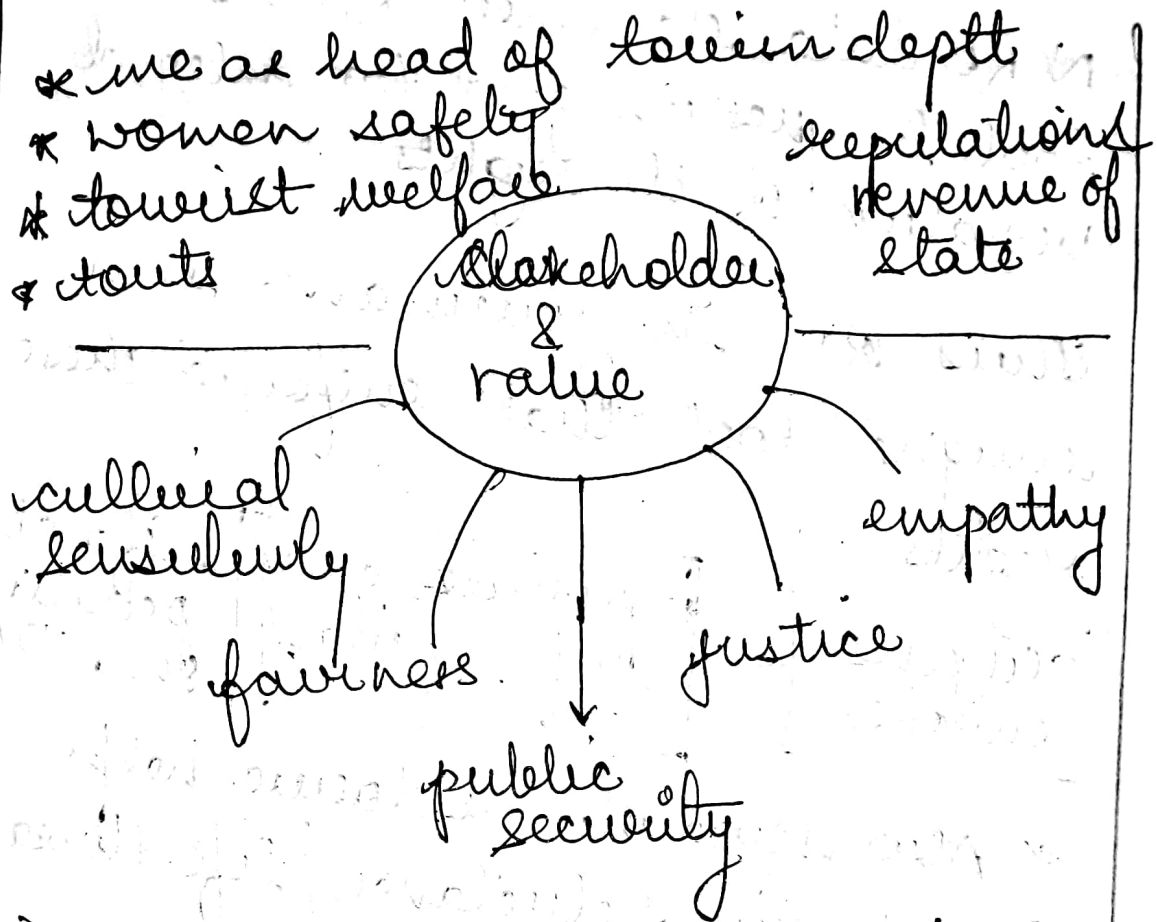 * me as head of tourism deptt
* women safety
* tourist welfare
* touts
reputations
revenue of
state
Stakeholder
&
value
cultural
sensitivity
empathy
fairness
justice
public
security